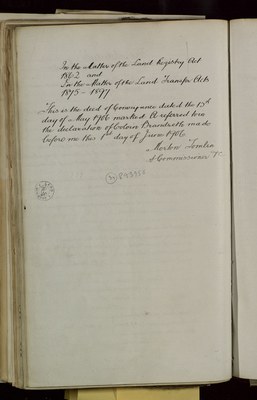 In the Matter of the Land Registry Act
1862 and
In the Matter of the Land Transfer Acts
1875 - 1897
This is the deed of Conveyance dated the 15th
day of May 1906 marked A referred to in
the declaration of made
before me this 1st day of June 1906
A Commissioner &c